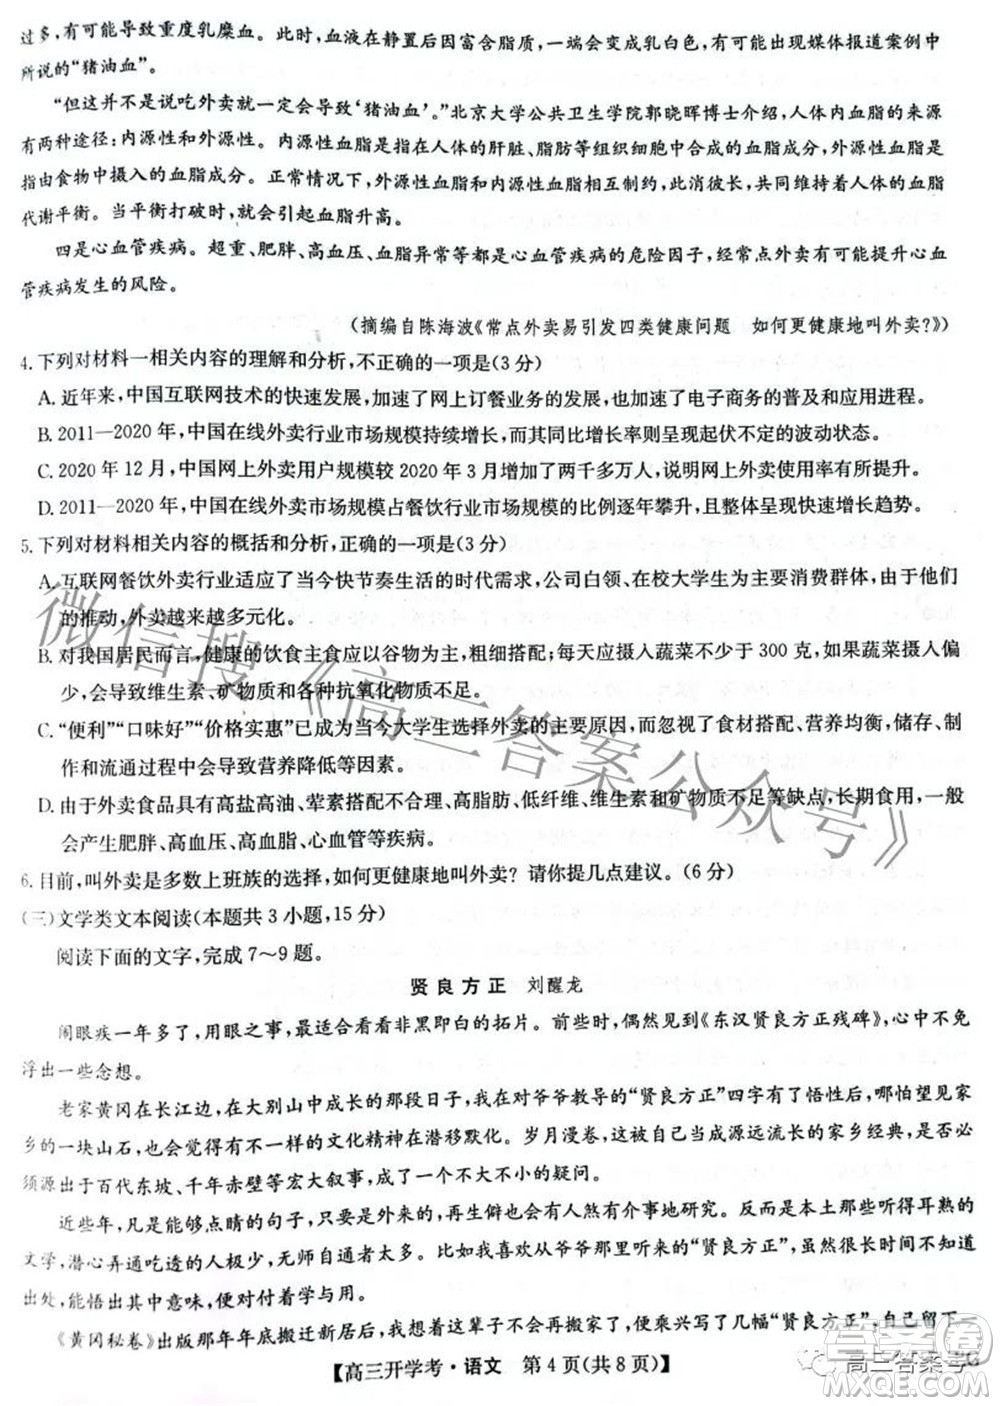 过多,有可能导致重度乳糜血。此时,血液在静置后因富含脂质,一端会变成乳白色,有可能出现媒体报道案例中
所说的“猪油血”。
“但这并不是说吃外卖就一定会导致‘猪油血’。”北京大学公共卫生学院郭晓晖博士介绍,人体内血脂的来源
有两种途径:内源性和外源性。内源性血脂是指在人体的肝脏、脂肪等组织细胞中合成的血脂成分,外源性血脂是
指由食物中摄入的血脂成分。正常情况下,外源性血脂和内源性血脂相互制约,此消彼长,共同维持着人体的血脂
代谢平衡。当平衡打破时,就会引起血脂升高。
四是心血管疾病。超重、肥胖、高血压、血脂升高等都是心血管疾病的危险因子,经常点外卖有可能提升心血
管疾病发生的风险。
(摘编自陈海波《常点外卖易引发四类健康问题 如何更健康地叫外卖?》)
4.下列对材料一相关内容的理解和分析,不正确的一项是(3 分)
A.近年来,中国互联网技术的快速发展,加速了网上订餐业务的形成,也加速了电子商务的普及和应用。
B.2011—2020 年,中国在线外卖行业市场规模持续增长,而其同比变化率则呈现起伏不定的波动状态。
C.2020 年 12 月,中国网上外卖用户规模较 2020 年 3 月增加了两千多万人,说明网上外卖使用率越来越高。
D.2011—2020 年,中国在线外卖市场规模占餐饮行业市场规模的比例逐年攀升,呈现快速增长趋势。
5.下列对材料相关内容的概括和分析,正确的一项是(3 分)
A.互联网餐饮外卖行业适应了当今快节奏生活的时代需求,公司白领、在校大学生是主要消费群体,在他们
的推动,外卖越来越多元化。
B.对我国居民而言,健康的饮食主食应以谷物为主,粗细搭配;每天应摄人蔬菜不少于 300 克,如果蔬菜摄人偏
少,会导致维生素、矿物质和各种抗氧化物质不足。
C.“便利”“口味好”“价格实惠”已成为当今大学生选择外卖的主要原因,而忽视了食材搭配、营养均衡,储存、制
作和流通过程中会导致营养降低等因素。
D.由于外卖食品具有高盐高油、荤素搭配不合理、高脂肪、低纤维、维生素和矿物质不足等缺点,长期食用,一般
会产生肥胖、高血压、高血脂、心血管等疾病。
6.目前,叫外卖是多数上班族的选择,如何更健康地叫外卖?请你提几点建议。(6 分)
(三)文学类文本阅读(本题共 3 小题,15 分)
阅读下面的文字,完成 7～9 题。
贤良方正 刘醒龙
闹眼疾一年多了,用眼之事,最适合看看非黑即白的拓片。前些时,偶然见到《东汉贤良方正残碑》,心中不免
浮出一些念想。
老家黄冈在长江边,在大别山中成长的那段日子,我对爷爷教导的“贤良方正”四字有了悟性后,仿佛望见家
乡的一块山石,也觉得有非同一样的文化精神在潜移默化。岁月漫卷,这如何成源远流长的家乡经典,是否必
须源出于百代东坡、千年赤壁等宏大叙事,成了一个不大不小的疑问。
近些年,凡是能够点睛的句子,只要是外来的,必定会有人煞有介事地研究。反而是本地那些听得耳熟的
文学,潜心弄通吃透的人极少,无师自通者太多。比如我喜欢从爷爷那里听来的“贤良方正”,虽然很长时间不知
出处,能悟出其中意味,便对付着学与用。
《黄冈秘卷》出版那年年底搬迁新居后,我想着这辈子不会再搬家了,便乘兴写了几幅“贤良方正”,自己留下
【高三开学考·语文 第 4 页(共 8 页)】
微信搜《高三答案公众号》
高三答案号
答案圈
MXQE.COM